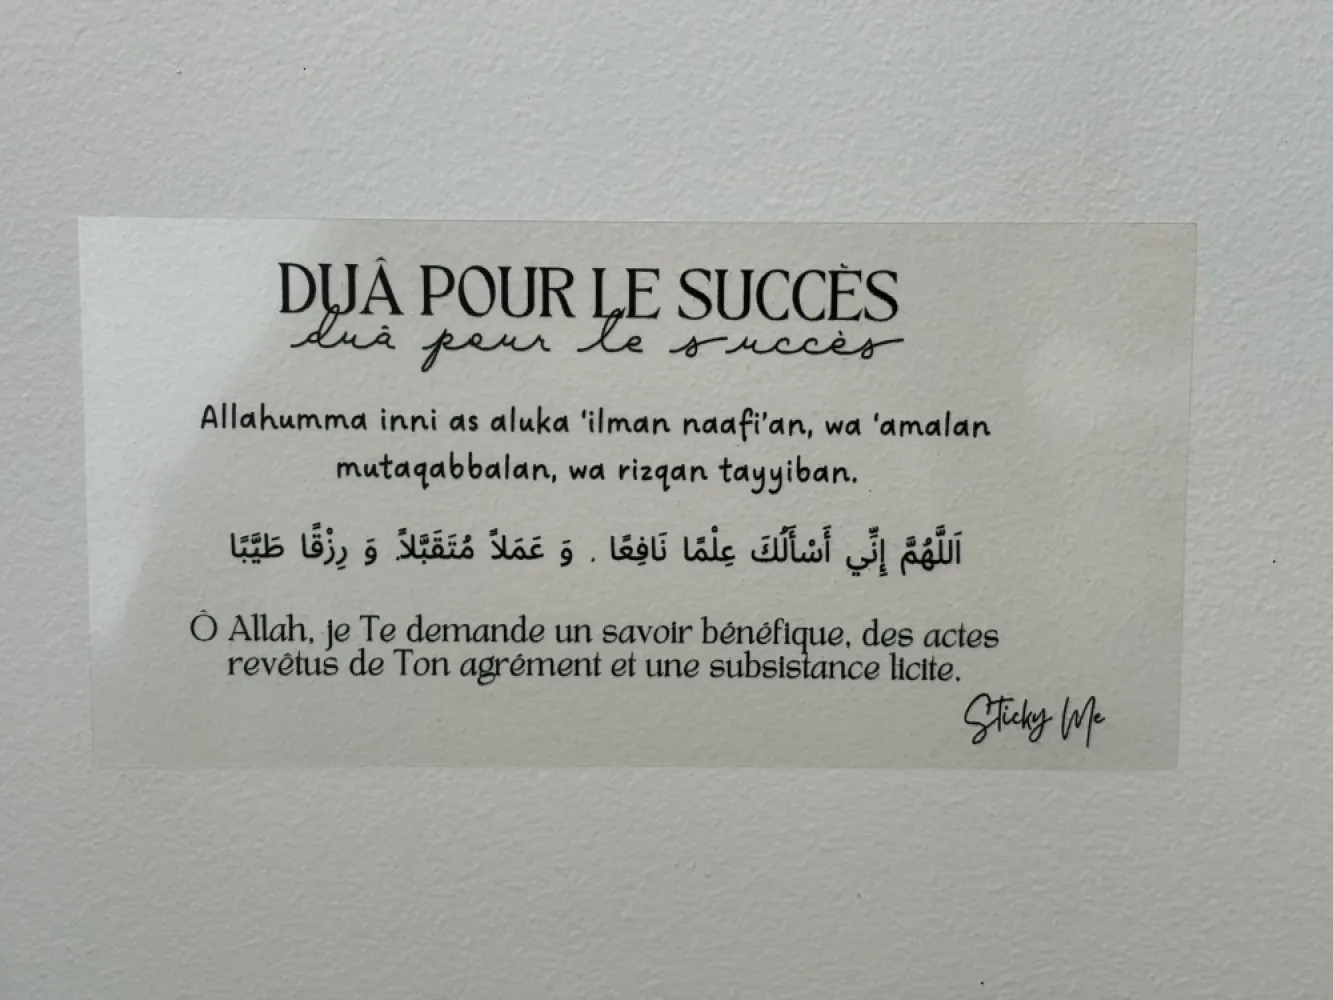 DUÂ POUR LE SUCCÈS
duâ pour le succès
Allahumma inni as aluka ‘ilman naafi’an, wa ‘amalan
mutaqabbalan, wa rizqan tayyiban.
اَللَّهُمَّ إِنِّي أَسْأَلُكَ عِلْمًا نَافِعًا . وَ عَمَلاً مُتَقَبَّلاً. وَ رِزْقًا طَيَّبًا
Ô Allah, je Te demande un savoir bénéfique, des actes
revêtus de Ton agrément et une subsistance licite.
Sticky Me